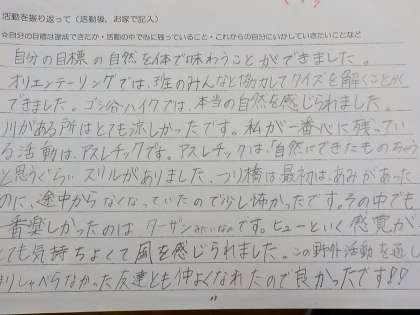 活動を振り返って（活動後、お家で記入）
☆自分の目標は達成できたか・活動の中で心に残っていること・これからの自分にいかしていきたいことなど
自分の目標の自然を体で味わうことができました。
オリエンテーリングでは、班のみんなと協力してクイズを解くことが
できました。ゴン谷ハイクでは、本当の自然を感じられました。
川がある所はとても涼しかったです。私が一番心に残ってい
る活動は、アスレチックです。アスレチックは、「自然にできたものちゃう
と思うぐらいスリルがありました。つり橋は最初は、あみがあった
のに、途中からなくなっていたので少し怖かったです。その中でも
一番楽しかったのはターザンみたいなのです。ヒューといく感覚が
とても気持ちよくて風を感じられました。この野外活動を通し
まりしゃべらなかった友達とも仲よくなれたので良かったです!!